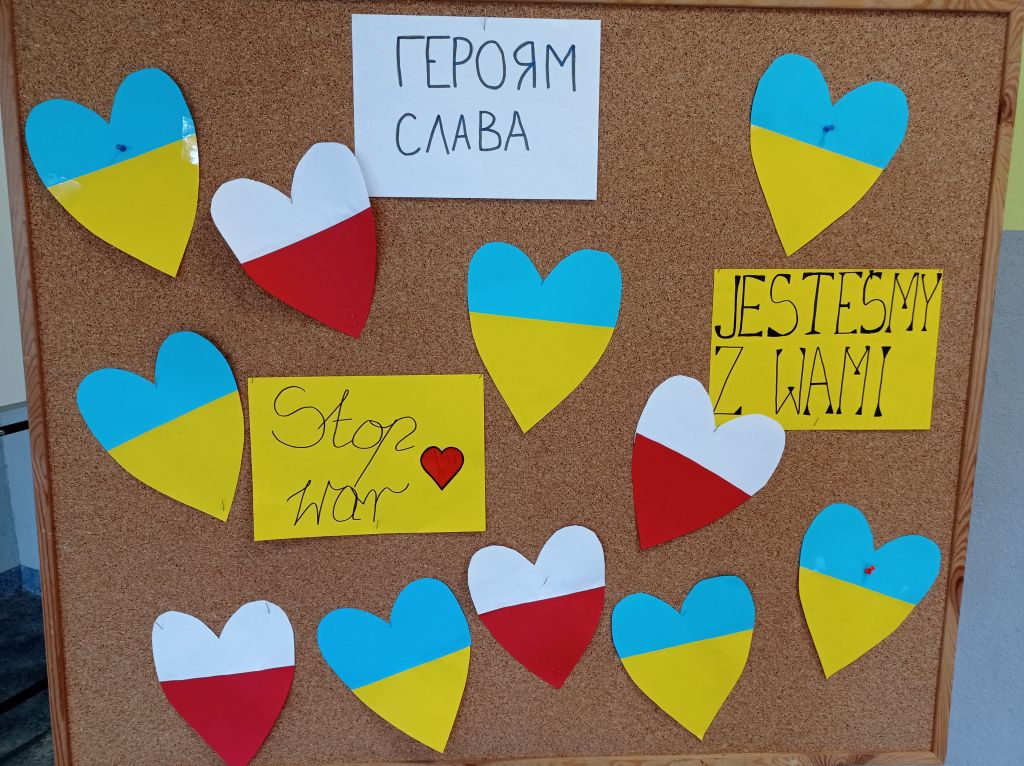 ГЕРОЯМ
СЛАВА
JESTEŚMY
Z WAMI
Stop
war